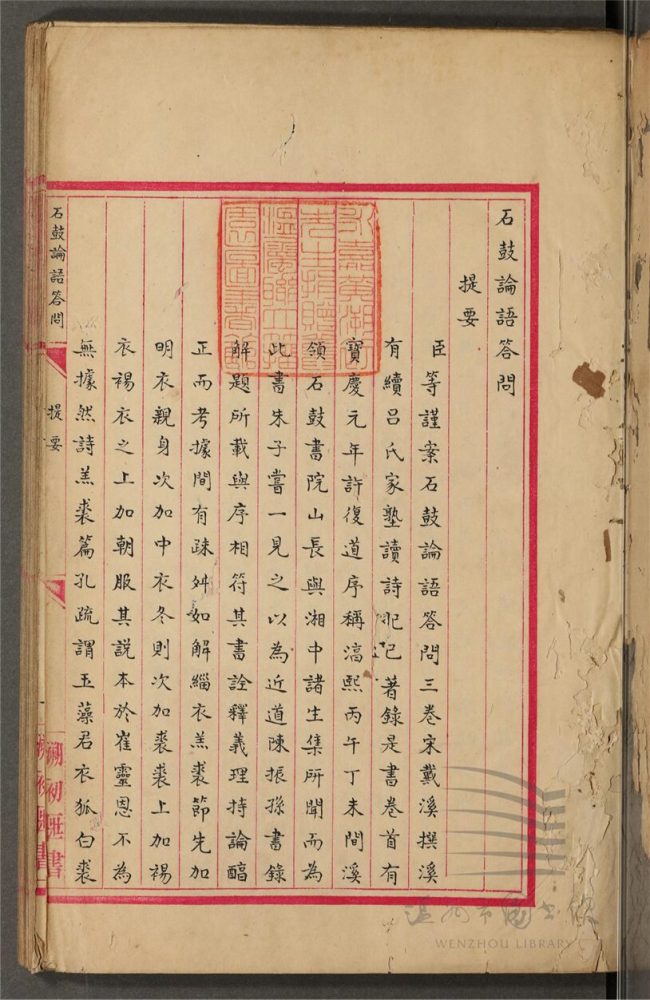 石鼓論語答問
提要
臣等謹案石鼓論語答問三卷宋戴溪撰溪
有續呂氏家塾讀詩記已著錄是書卷首有
寶慶元年許復道序稱湻熙丙午丁未間溪
領石鼓書院山長與湘中諸生集所聞而為
此書朱子嘗一見之以為近道陳振孫書錄
解題所載與序相符其書詮釋義理持論醕
正而考據間有疎舛如解緇衣羔裘節先加
明衣親身次加中衣冬則次加裘裘上加裼
衣裼衣之上加朝服其説本於崔靈恩不為
無據然詩羔裘篇孔疏謂玉藻君衣狐白裘
石鼓論語答問
提要
一
永嘉黃溯初
先生捐贈
溫屬聯立籀
園圖書館
溫州市圖書館
WENZHOU LIBRARY